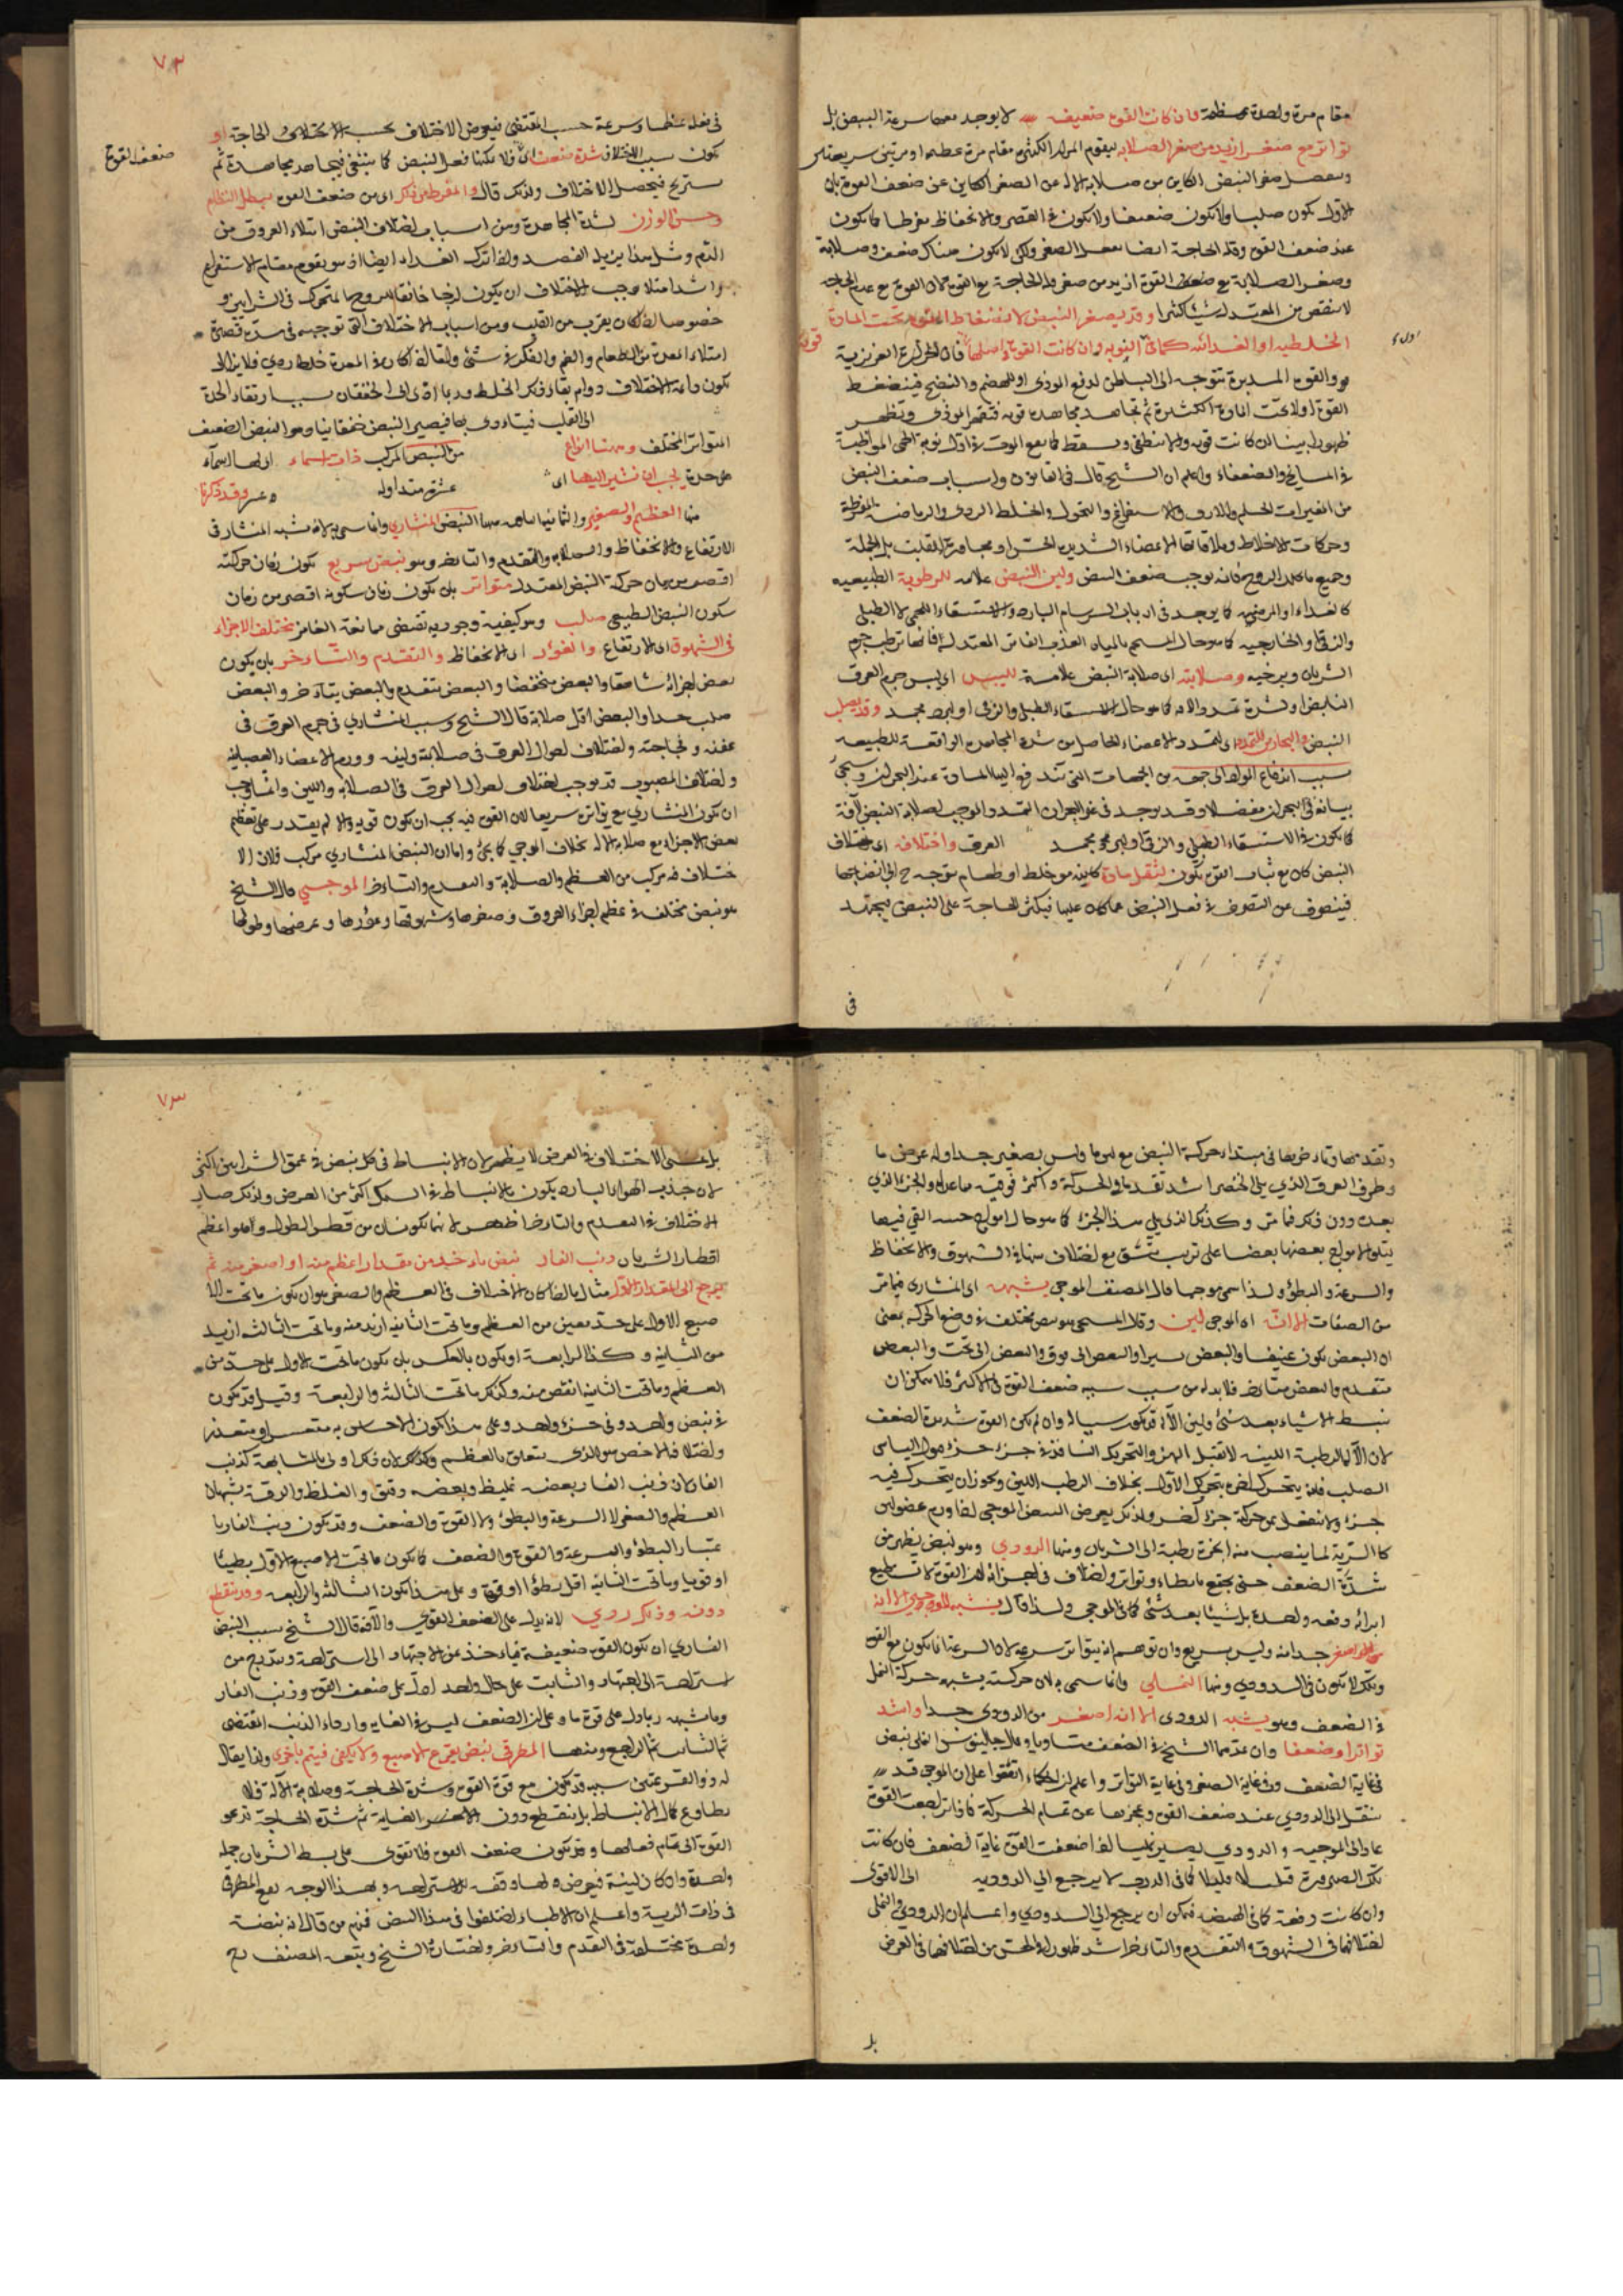 مقام مرة واحدة عظيمة فان كانت القوة ضعيفة لا يوجد معها سرعة النبض بل
تواتر مع صغر ازيد من صغر الصلابة ليقوم المرار الكثيرة مقام مرة عظيمة او مرتين سريعتين
وينفصل صغر النبض الكاين من صلابة الآلة عن الصغر الكاين عن ضعف القوة بان
الاول يكون صلبا ولا يكون ضعيفا ولا يكون في القصر والانخفاظ مفرطا كما يكون
عند ضعف القوة وقلة الحاجة ايضا تفعل الصغر ولكن لا يكون هناك ضعف وصلابة
وصغر الصلابة مع ضعف القوة ازيد من صغر قلة الحاجة مع القوة لان القوة مع عدم الحاجة
لا ينقص من المعتدل شيئا كثيرا وقد يصغر النبض لانضغاط القوة تحت المادة
الخلطية او الغذائية كما في النوبة وان كانت القوة في اصلها قوية فان الحرارة الغريزية
والقوة المدبرة تتوجه الى الباطن لدفع الموذي او للهضم والنضج فينضغط
القوة اولا تحت المادة الكثيرة ثم تجاهد مجاهدة قوية فتقهر الموذي وتظهر
ظهورا بينا ان كانت قوية والا تنطفي وتسقط كما يقع الموت في اول نوبة الحمى المواظبة
في المشايخ والضعفاء واعلم ان الشيخ قال في القانون واسباب ضعف النبض
من المغيرات الهم والارق والاستفراغ والنحول والخلط الردي والرياضة المفرطة
وحركات الاخلاط وملاقاتها لاعضاء الشديدة الحس او مجاورة للقلب بالجملة
وجميع ما يحلل الروح فانه يوجب ضعف النبض ولين النبض علامة للرطوبة الطبيعية
كالغذاء او المرضية كما يوجد في ارباب السرسام البارد والاستسقاء اللحمي لا الطبلي
والزقي او الخارجية كما هو حال المستحم بالمياه العذبة الفاتر المعتدلة فانها ترطب جرم
الشريان ويرخيه وصلابته اي صلابة النبض علامة لليبس اي يبس جرم العرق
النابض او شدة تمدد الآلة كما هو حال الاستسقاء الطبلي والزقي او لبرد مجمد وقد يصلب
النبض والبحارين للتمدد اي لتمدد الاعضاء الحاصل من شدة المجاهدة الواقعة للطبيعة
بسبب اندفاع المواد الى جهة من الجهات التي تندفع اليها المادة عند البحران وسيجيء
بيانه في البحران مفصلا وقد يوجد في غير البحران التمدد الموجب لصلابة النبض لآفة
كما يكون في الاستسقاء الطبلي والزقي او لبرد مجمد العرق واختلافه اي اختلاف
النبض كان مع ثبات القوة يكون لثقل مادة كاينة من خلط او طعام يتوجه ح الى انضاجها
فينصرف عن التصرف في فعل النبض عما كان عليها فيكثر الحاجة على النبض فيجتهد
في
٧٢
في فعله عظما وسرعة حسب المقتضى فيعرض الاختلاف بحسب الاختلاف الحاجة او
ضعف القوة
يكون سبب الاختلاف شدة ضعف القوة فلا يمكنها فعل النبض كما ينبغي فيجاهد مجاهدة ثم
يستريح فيحصل الاختلاف ولذلك قال والمفرط من ذلك اي من ضعف القوة يبطل النظام
وحسن الوزن لشدة المجاهدة ومن اسباب اختلاف النبض امتلاء العروق من
الدم ومثل هذا يزيله الفصد واذا ترك الغذاء ايضا اذ هو يقوم مقام الاستفراغ
واشد امتلاء يوجب الاختلاف ان يكون لزجا خانقا للروح المتحرك في الشرايين و
خصوصا اذا كان يقرب من القلب ومن اسباب الاختلاف التي توجبه في مدة قصيرة
امتلاء المعدة من الطعام والغم والفكر في شيء ولقائه اذا كان في المعدة خلط ردي فلا يزال
يكون دائمة الاختلاف دوام بقاء ذلك الخلط وربما ادى الى الخفقان بسبب ارتقاء الحدة
الى القلب فيتاذى بها فيصير النبض خفقانيا وهو النبض الضعيف
المتواتر المختلف ومنها انواع من النبض المركب ذات اسماء اي لها اسماء
على حدة يجب ان نشير اليها اي عشرة متداولة وقد ذكرنا
منها العظيم والصغير والثمانية الباقية منها النبض المنشاري وانما سمي به لانه شبه المنشار في
الارتفاع والانخفاظ والصلابة والتقدم والتاخر وهو نبض سريع يكون زمان حركته
اقصر من زمان حركة النبض المعتدل متواتر بان يكون زمان سكونه اقصر من زمان
سكون النبض الطبيعي صلب وهو كيفية وجودية تقتضي ممانعة الغامز مختلف الاجزاء
في الشهوق اي الارتفاع والغؤر اي الانخفاظ والتقدم والتاخر بان يكون
بعض اجزائه شاهقا والبعض منخفضا والبعض يتقدم والبعض يتاخر والبعض
صلب جدا والبعض اقل صلابة قال الشيخ وسبب المنشاري في جرم العرق في
عفنه و فجاجته واختلاف احوال العرق في صلابته ولينه وورم الاعضاء العصبانية
واختلاف المصبوب قد يوجب اختلاف احوال العرق في الصلابة واللين وانما وجب
ان يكون المنشاري مع تواتره سريعا لان القوة فيه يجب ان يكون قوية والا لم يقدر على تعظيم
بعض الاجزاء مع صلابة الآلة بخلاف الموجي كما يجيء واما ان النبض المنشاري مركب فلان الا
ختلاف فيه مركب من العظم والصلابة والتقدم والتاخر الموجي قال الشيخ
هو نبض مختلف في عظم اجزاء العروق وصغرها وشهوقها وغؤرها وعرضها وطولها
وتقدمها وتاخرها في مبتداء حركة النبض مع لين ما وليس بصغير جدا وله عرض ما
وطرف العرق الذي يلي الخنصر اشد تقدما في الحركة واكثر فوقية مما عداه والجزء الذي
بعده دون ذلك فما تر وكذلك الذي يلي هذا الجزء كما هو حال امواج خمسة التي فيها
يتلو الامواج بعضها بعضا على ترتيب متسق مع اختلاف بينها في الشهوق والانخفاظ
والسرعة والبطؤ ولذا سمي موجيا قال المصنف الموجي يشبهه اي المنشاري فيما تر
من الصفات الا انه اي الموجي لين وقال المسيحي هو نبض مختلف في وضع الحركة بمعنى
ان البعض يكون عنيفا والبعض يسيرا والبعض الى فوق والبعض الى تحت والبعض
متقدم والبعض متاخر فلا بد له من سبب سببه ضعف القوة في الاكثر فلا يمكن ان
يبسط الاشياء بعد شيء ولين الآلة قد يكون سببا له وان لم يكن القوة شديدة الضعف
لان الآلة الرطبة اللينة لا تقبل الهز والتحريك النافذ في جزء جزء قبول اليابس
الصلب فانه يتحرك اخره بتحريك الاول بخلاف الرطب اللين ويجوز ان يتحرك فيه
جزء ولا ينفعل من حركته جزء اخر ولذلك يعرض النبض الموجي اذا ورم عضو لين
كالرية لما ينصب منه ابخرة رطبة الى الشريان ومنها الدودي وهو نبض يظهر من
شدة الضعف حتى يجتمع بابطاء وتواتر واختلاف في اجزائه لان القوة لا تستطيع
ابرائه دفعة واحدة بل شيئا بعد شيء كما في الموجي ولذا قال يشبه الموجي الا انه
اصغر جدا منه وليس بسريع وان توهم انه بتواتره سرعة لان السرعة انما يكون مع القوة
وتلك لا تكون في الدودي ومنها النملي وانما سمي به لان حركته يشبه حركة النمل
في الضعف وهو يشبه الدودي الا انه اصغر من الدودي جدا واشد
تواترا وضعفا وان عدهما الشيخ في الضعف متساويا وقال جالينوس النملي نبض
في غاية الضعف وفي غاية الصغر وفي غاية التواتر واعلم ان الحكماء اتفقوا على ان الموجي قد
ينتقل الى الدودي عند ضعف القوة وعجزها عن تمام الحركة فاذا تراجعت القوة
عاد الى الموجية والدودي يصير نمليا اذا ضعفت القوة غاية الضعف فان كانت
تلك الصيرورة قليلا قليلا كما في الدرج لا يرجع الى الدودية الى الاقوى
وان كانت دفعة كما في الهيضة فيمكن ان يرجع الى الدودي واعلم ان الدودي والنملي
اختلافهما في الشهوق والتقدم والتاخر اشد ظهورا في الحس من اختلافهما في العرض
بل
٧٣
بل عسى الاختلاف في العرض لا يظهر لان الانبساط في كل نبض في عمق الشرايين اكثر
لان جذب الهواء البارد يكون بالانبساط في السمك اكثر من العرض ولذلك صار
الاختلاف في التقدم والتاخر اظهر لانهما يكونان من قطر الطول وهو اعظم
اقطار الشريان وذنب الفار نبض ياخذ من مقدار اعظم منه او اصغر منه ثم
يرجع الى المقدار الاول مثاله اذا كان الاختلاف في العظم والصغر هو ان يكون ما تحت الا
صبع الاول على حد معين من العظم وما تحت الثانية ازيد منه وما تحت الثالثة ازيد
من الثانية وكذا الرابعة او يكون بالعكس بان يكون ما تحت الاول على حد من
العظم وما تحت الثانية انقص منه وكذلك ما تحت الثالثة والرابعة وقيل قد يكون
في نبض واحد وفي جزء واحد وعلى هذا يكون الاحساس به متعسر او متعذر
واختلافه الاخص هو الذي يتعلق بالعظم وكذلك لان ذلك اولى بالمشابهة لذنب
الفار لان ذنب الفار بعضه غليظ وبعضه دقيق والغلظ والدقة يشبهان
العظم والصغر لا السرعة والبطؤ ولا القوة والضعف وقد يكون ذنب الفار با
عتبار البطؤ والسرعة والقوة والضعف كما يكون ما تحت الاصبع الاول بطيئا
او قويا وما تحت الثانية اقل بطؤا او قوة وعلى هذا يكون الثالثة والرابعة وقد ينقطع
دونه وذلك ردي لانه يدل على الضعف القوي والآفة قال الشيخ سبب النبض
الفاري ان يكون القوة ضعيفة فياخذ عن الاجتهاد الى استراحة ويتدرج من
استراحة الى اجتهاد والثابت على حال واحد ادل على ضعف القوة وذنب الفار
وما يشبهه ربما دل على قوة ما وعلى ان الضعف ليس في الغاية وارداء الذنب المنقضي
ثم الثابت ثم الراجع ومنها المطرقي نبض يقرع الاصبع ولا يكفي فيتم باخرى ولذا يقال
له ذو القرعتين سببه قد يكون مع قوة القوة وشدة الحاجة وصلابة الآلة فلا
يطاوع كمال الانبساط بل ينقطع دون الغاية ثم شدة الحاجة تدعو
القوة الى تمام فعلها وقد يكون ضعف القوة فلا تقوى على بسط الشريان جملة
واحدة وان كان لينة فيعرض لها وقفة للاستراحة وبهذا الوجه يقع المطرقي
في ذات الرية واعلم ان الاطباء اختلفوا في هذا النبض فمنهم من قال انه نبضة
واحدة مختلفة في التقدم والتاخر واختاره الشيخ ويتبعه المصنف رح